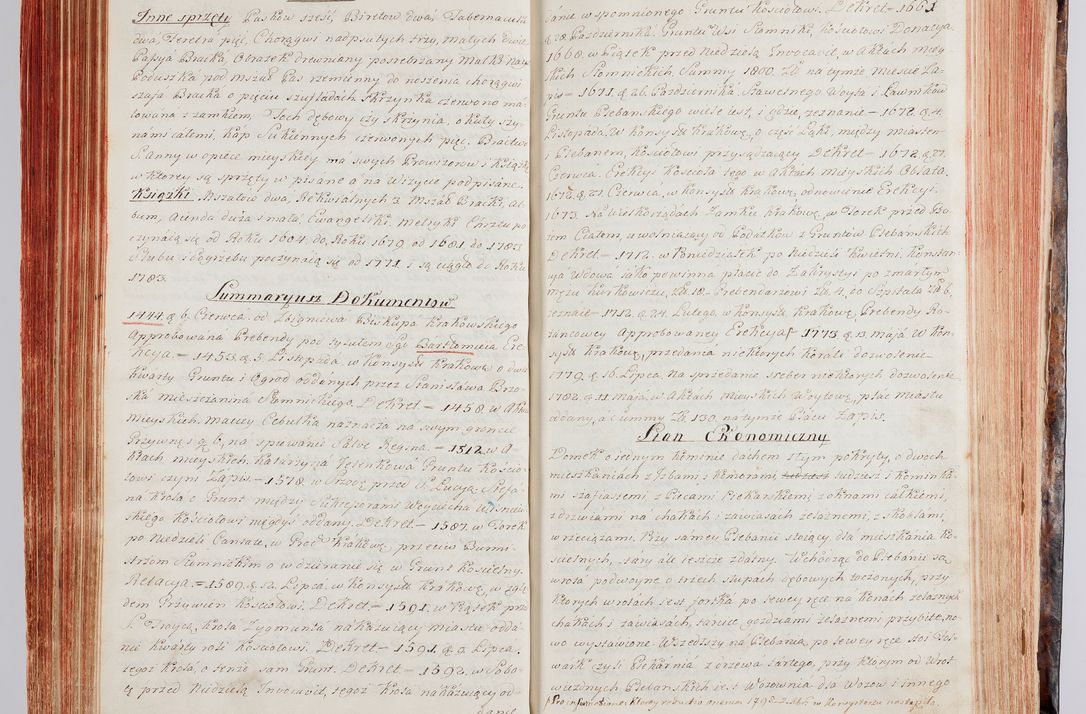 Inne sprzęty Pasków sześć, Biretów dwa, Tabernacula
dwa, Feretra pięć, Chorągwi nadpsutych trzy, małych dwie
Passya Bracka, Obrazek drewniany posrebrzany Matki Nays
Poduszka pod mszał Pas rzemienny do noszenia chorągwi
szafa Bracka o pięciu szufladach skrzynka czerwono ma-
lowana z zamkiem, dębowy czy skrzynia, okuty szy-
nami całemi, kap Sukiennych czerwonych pięć. Bractwo
S. Anny w opiece mieyskiey ma swych Prowizorow i książkę
w ktorey są sprzęty wpisane a na Wizycie podpisane.
Książki Mszałow dwa, Rekwialnych 3 Mszał Bracki, Al-
bum, Acienda duża i mała, Ewangelik. metryki Chrztu po
czynaią się od Roku 1604. do Roku 1679. od 1681 do 1783
o ślubu i pogrzebu poczynaią się od 1771 i są ciągłe do Roku
1783.
Summaryusz Dokumentow
1444. d. 6. Czerwca. od Zbigniewa Biskupa Krakowskiego
Approbowana Prebendy pod tytułem Sgo Bartłomieia Ere-
kcya. = 1453. d. 5. Listopada w Konsystu Krakowie o dwie
Kwarty Gruntu i Ogrod oddanych przez Stanisława Brzo-
ska mieszczanina Słomnickiego. Dekret = 1458. w Aktach
mieyskich. maciey Cebulka naznacza na swym groncie
Grzywnę 1 gr. 6. na spiewanie Salve Regina. = 1512. w A-
ktach mieyskich. Katarzyna Jesenkowa Gruntu Kościo-
łowi czyni Zapis = 1578. w Srzodę przed S. Lucyą Stefa-
na krola z Grunt między Sukcesorami Woyciecha Wisniew-
skiego Kościołowi niegdyś oddany. Dekret = 1587. w Wtorek
po Niedzieli Cantate, w Krakowie przeciw Burmi-
strzom Słomnickim o wdzieranie się w Grunt Kościelny.
Relacya = 1589. d. 12. Lipca w Konsystu Krakowie, w zglę-
dem Grzywien Kościołowi. Dekret = 1591. w Piątek przed
krola Zygmunta nakazuiący miastu odda-
nie kwarty roli Kościołowi. Dekret = 1591. d. 9. Lipca.
tegoz krola, o tenże sam Grunt. Dekret = 1592. w Sobo-
tę przed Niedzielą Invocavit, tegoz krola nakazuiący od-
danie
danie wspomnionego Gruntu Kościołowi. Dekret = 1661
d. 28. Pazdziernika. Gruntu Wsi Słomniki, Kościołowi Donacya.
1668. w Piątek przed Niedzielą Invocavit, w Aktach miey-
skich Słomnickich. Summy 1800. Zł. na tymże mieście Za-
pis = 1671. d. 26. Pazdziernika. Sławetnego Woyta i Ławników
Gruntu Plebanskiego wiele iest, i gdzie, zeznanie = 1672. d. 4.
Listopada. W Konsystu Krakowie, o część Łąki, między miastem
i Plebanem, Kościołowi przysądzaiący Dekret = 1672. d. 27.
Czerwca. Erekcyi Kościoła tego w Aktach Mieyskich Oblata.
1672. d. 27. Czerwca, w Konsystu Krakowie odnowienie Erekcyi.
1673. na Wielkorządach Zamku Krakowie, w Wtorek przed Bo-
żem Ciałem, uwolniaiący od Podatków z Gruntów Plebanskich
Dekret. = 1712. w Poniedziałek po Niedzieli Kwietni. Konstan-
cya Wdowa iako powinna płacic do Zakrystyi po zmarłym
mężu Kurkowiczu, Zł. 18. Prebendarzowi Zł. 4. do Szpitala Zł. 6.
zeznaie = 1712. d. 24. Lutego w Konsystu Krakowie, Prebendy Ro-
żańcowey Approbowaney Erekcya = 1773 d. 11. maja W Kon-
systu Krakowie, przedania niektorych korali dozwolenie
1779. d. 16. Lipca. Na sprzedanie sreber niektorych dozwolenie
1782. d. 11. maja w Aktach mieyskich Woytowie, plac miastu
oddany, a Summy Zł. 130. na tymże Placu Zapis.
Stan Ekonomiczny
Domek o iednym kominie dachem złym pokryty, o dwoch
mieszkaniach z Izbami i Komorami, tudzież i Kominka-
mi szafiastemi, z Piecami Piekarskiemi, z oknami całkiemi,
z drzwiami na hakach i zawiasach żelaznemi, z skoblami,
wrzeciązami. Przy samey Plebanii stoiący dla mieszkania Ko-
ścielnych, stary ale ieszcze zdatny. Wchodząc do Plebanii są
wrota podwoyne o trzech słupach dębowych toczonych, przy
ktorych wrotach iest fortka po lewey ręce na kunach żelaznych
hakach i zawiasach, tarcice gozdziami żelaznemi przybite, no-
wo wystawione. Wszedłszy na Plebania, po lewey ręce stoi Fol-
wark czyli Piekarnia z drzewa tartego, przy ktorym od Wrot
wiezdnych Plebanskich iest Wozownia dla Wozow i innego